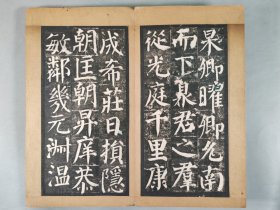 杲卿曜卿允南
而下泉君之羣
從光庭千里康
成希莊日損隱
朝匡朝昇庠恭
敏鄰幾元淵溫